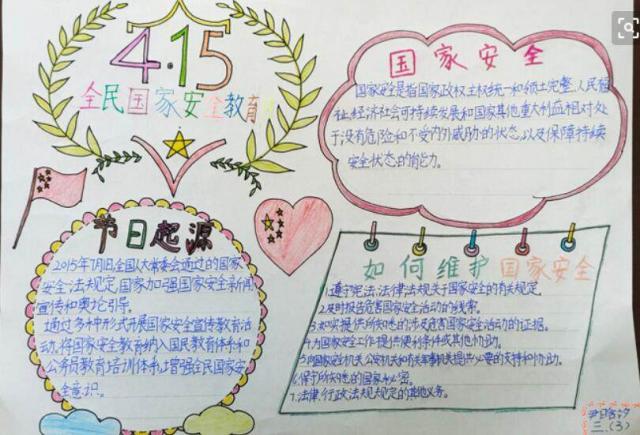 4.15
全民国家安全教育日
国家安全
国家安全是指国家政权、主权、统一和领土完整、人民福
祉、经济社会可持续发展和国家其他重大利益相对处
于没有危险和不受内外威胁的状态,以及保障持续
安全状态的能力。
节日起源
2015年7月1日全国人大常委会通过的国家
安全法规定,国家加强国家安全新闻
宣传和舆论引导。
通过多种形式开展国家安全宣传教育活
动,将国家安全教育纳入国民教育体系和
公务员教育培训体系,增强全民国家安
全意识。
如何维护国家安全
1.遵守宪法、法律法规关于国家安全的有关规定.
2.及时报告危害国家安全活动的线索.
3.如实提供所知悉的涉及危害国家安全活动的证据.
4.为国家安全工作提供便利条件或其他协助.
5.向国家安全机关、公安机关和有关军事机关提供必要的支持和协助.
6.保守所知悉的国家秘密.
7.法律、行政法规规定的其他义务.
三.(3)